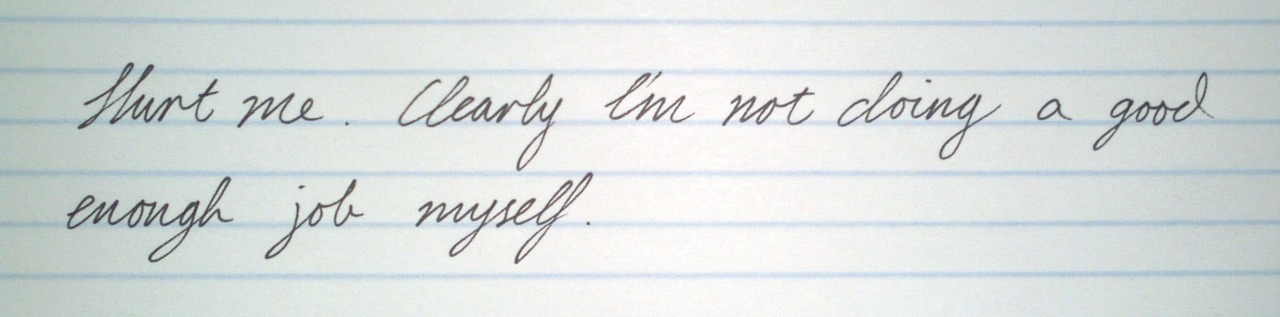 Hurt me. Clearly I'm not doing a good
enough job myself.